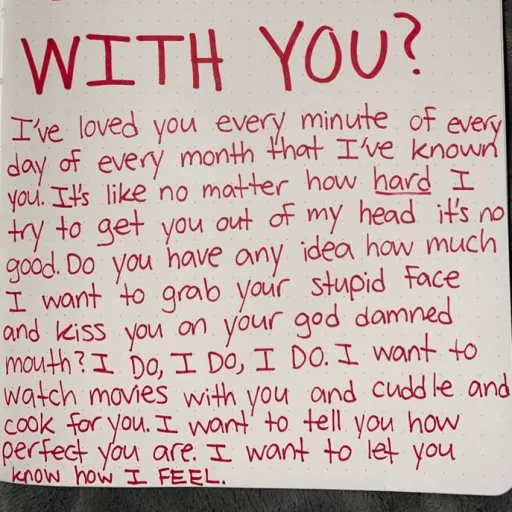 WITH YOU?
I've loved you every minute of every
day of every month that I've known
you. It's like no matter how hard I
try to get you out of my head it's no
good. Do you have any idea how much
I want to grab your stupid face
and kiss you on your god damned
mouth? I DO, I DO, I DO. I want to
watch movies with you and cuddle and
cook for you. I want to tell you how
perfect you are. I want to let you
know how I FEEL.